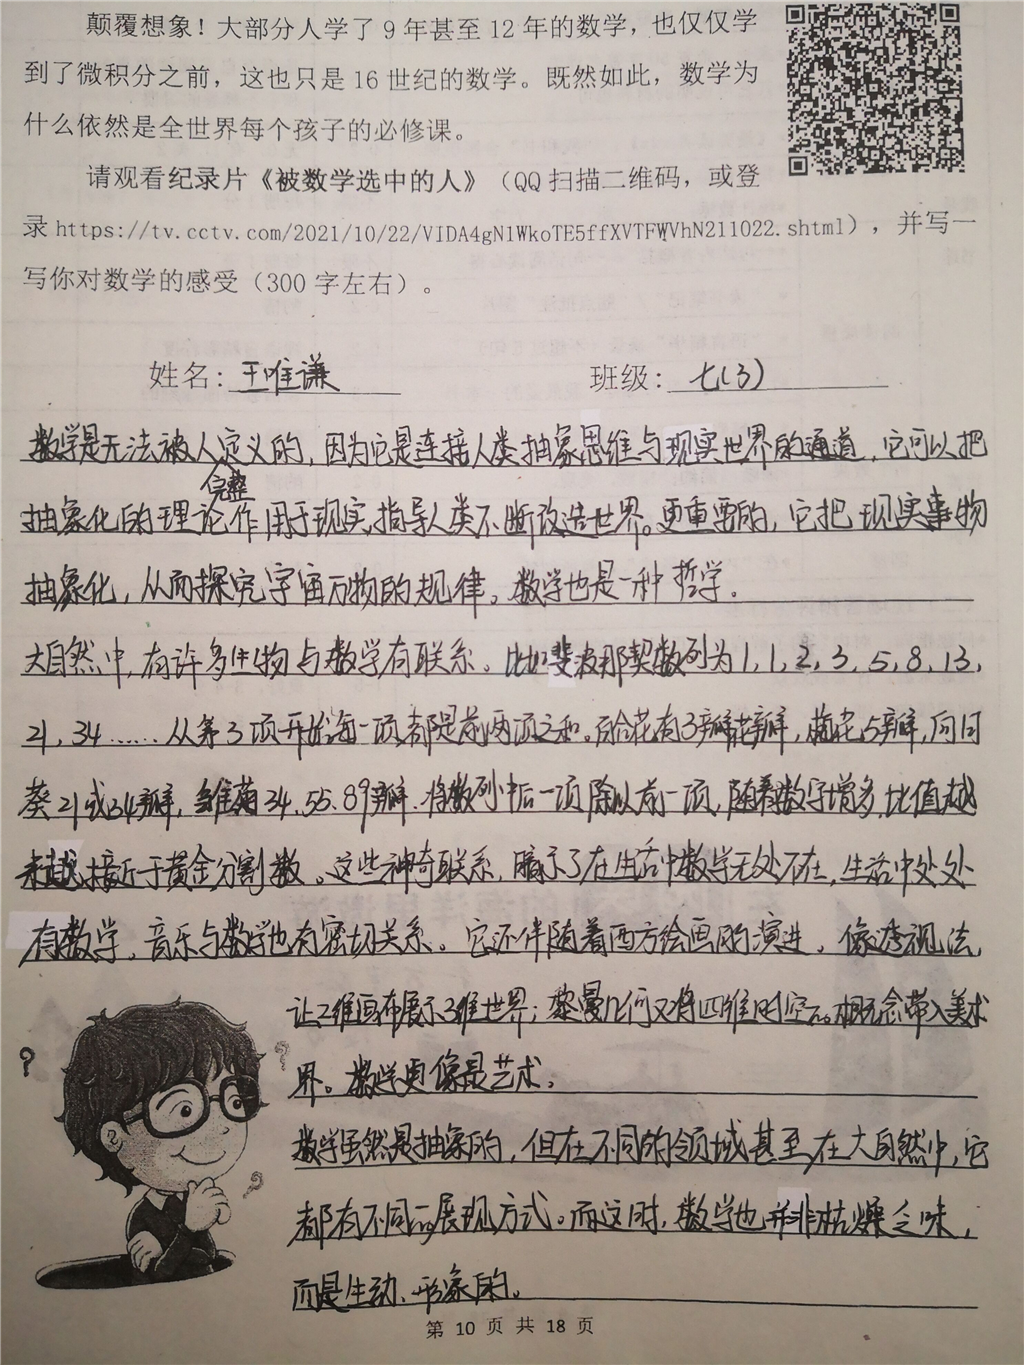 颠覆想象！大部分人学了9年甚至12年的数学，也仅仅学
到了微积分之前，这也只是16世纪的数学。既然如此，数学为
什么依然是全世界每个孩子的必修课。
请观看纪录片《被数学选中的人》（QQ扫描二维码，或登
录https://tv.cctv.com/2021/10/22/VIDA4gN1WkoTE5ffXVTFWVhN211022.shtml），并写一
写你对数学的感受（300字左右）。
姓名：王唯谦 班级：七(3)
数学是无法被人定义的，因为它是连接人类抽象思维与现实世界的通道，它可以把
完整
抽象化的理论作用于现实，指导人类不断改造世界。更重要的，它把现实事物
抽象化，从而探究宇宙万物的规律。数学也是一种哲学。
大自然中，有许多生物与数学有联系。比如斐波那契数列为1，1，2，3，5，8，13，
21，34……从第3项开始每一项都是前两项之和。百合花有3瓣花瓣，梅花5瓣，向日
葵21或34瓣，雏菊34，55，89瓣。将数列中后一项除以前一项，随着数字增多，比值越
来越接近于黄金分割数。这些神奇联系，暗示了在生活中数学无处不在，生活中处处
有数学。音乐与数学也有密切关系。它还伴随着西方绘画的演进。像透视法，
让2维画布展示3维世界；黎曼几何又将四维时空的概念带入美术
界。数学更像是艺术。
数学虽然是抽象的，但在不同的领域甚至在大自然中，它
都有不同的展现方式。而这时，数学也并非枯燥乏味，
而是生动、形象的。
第 10 页 共 18 页